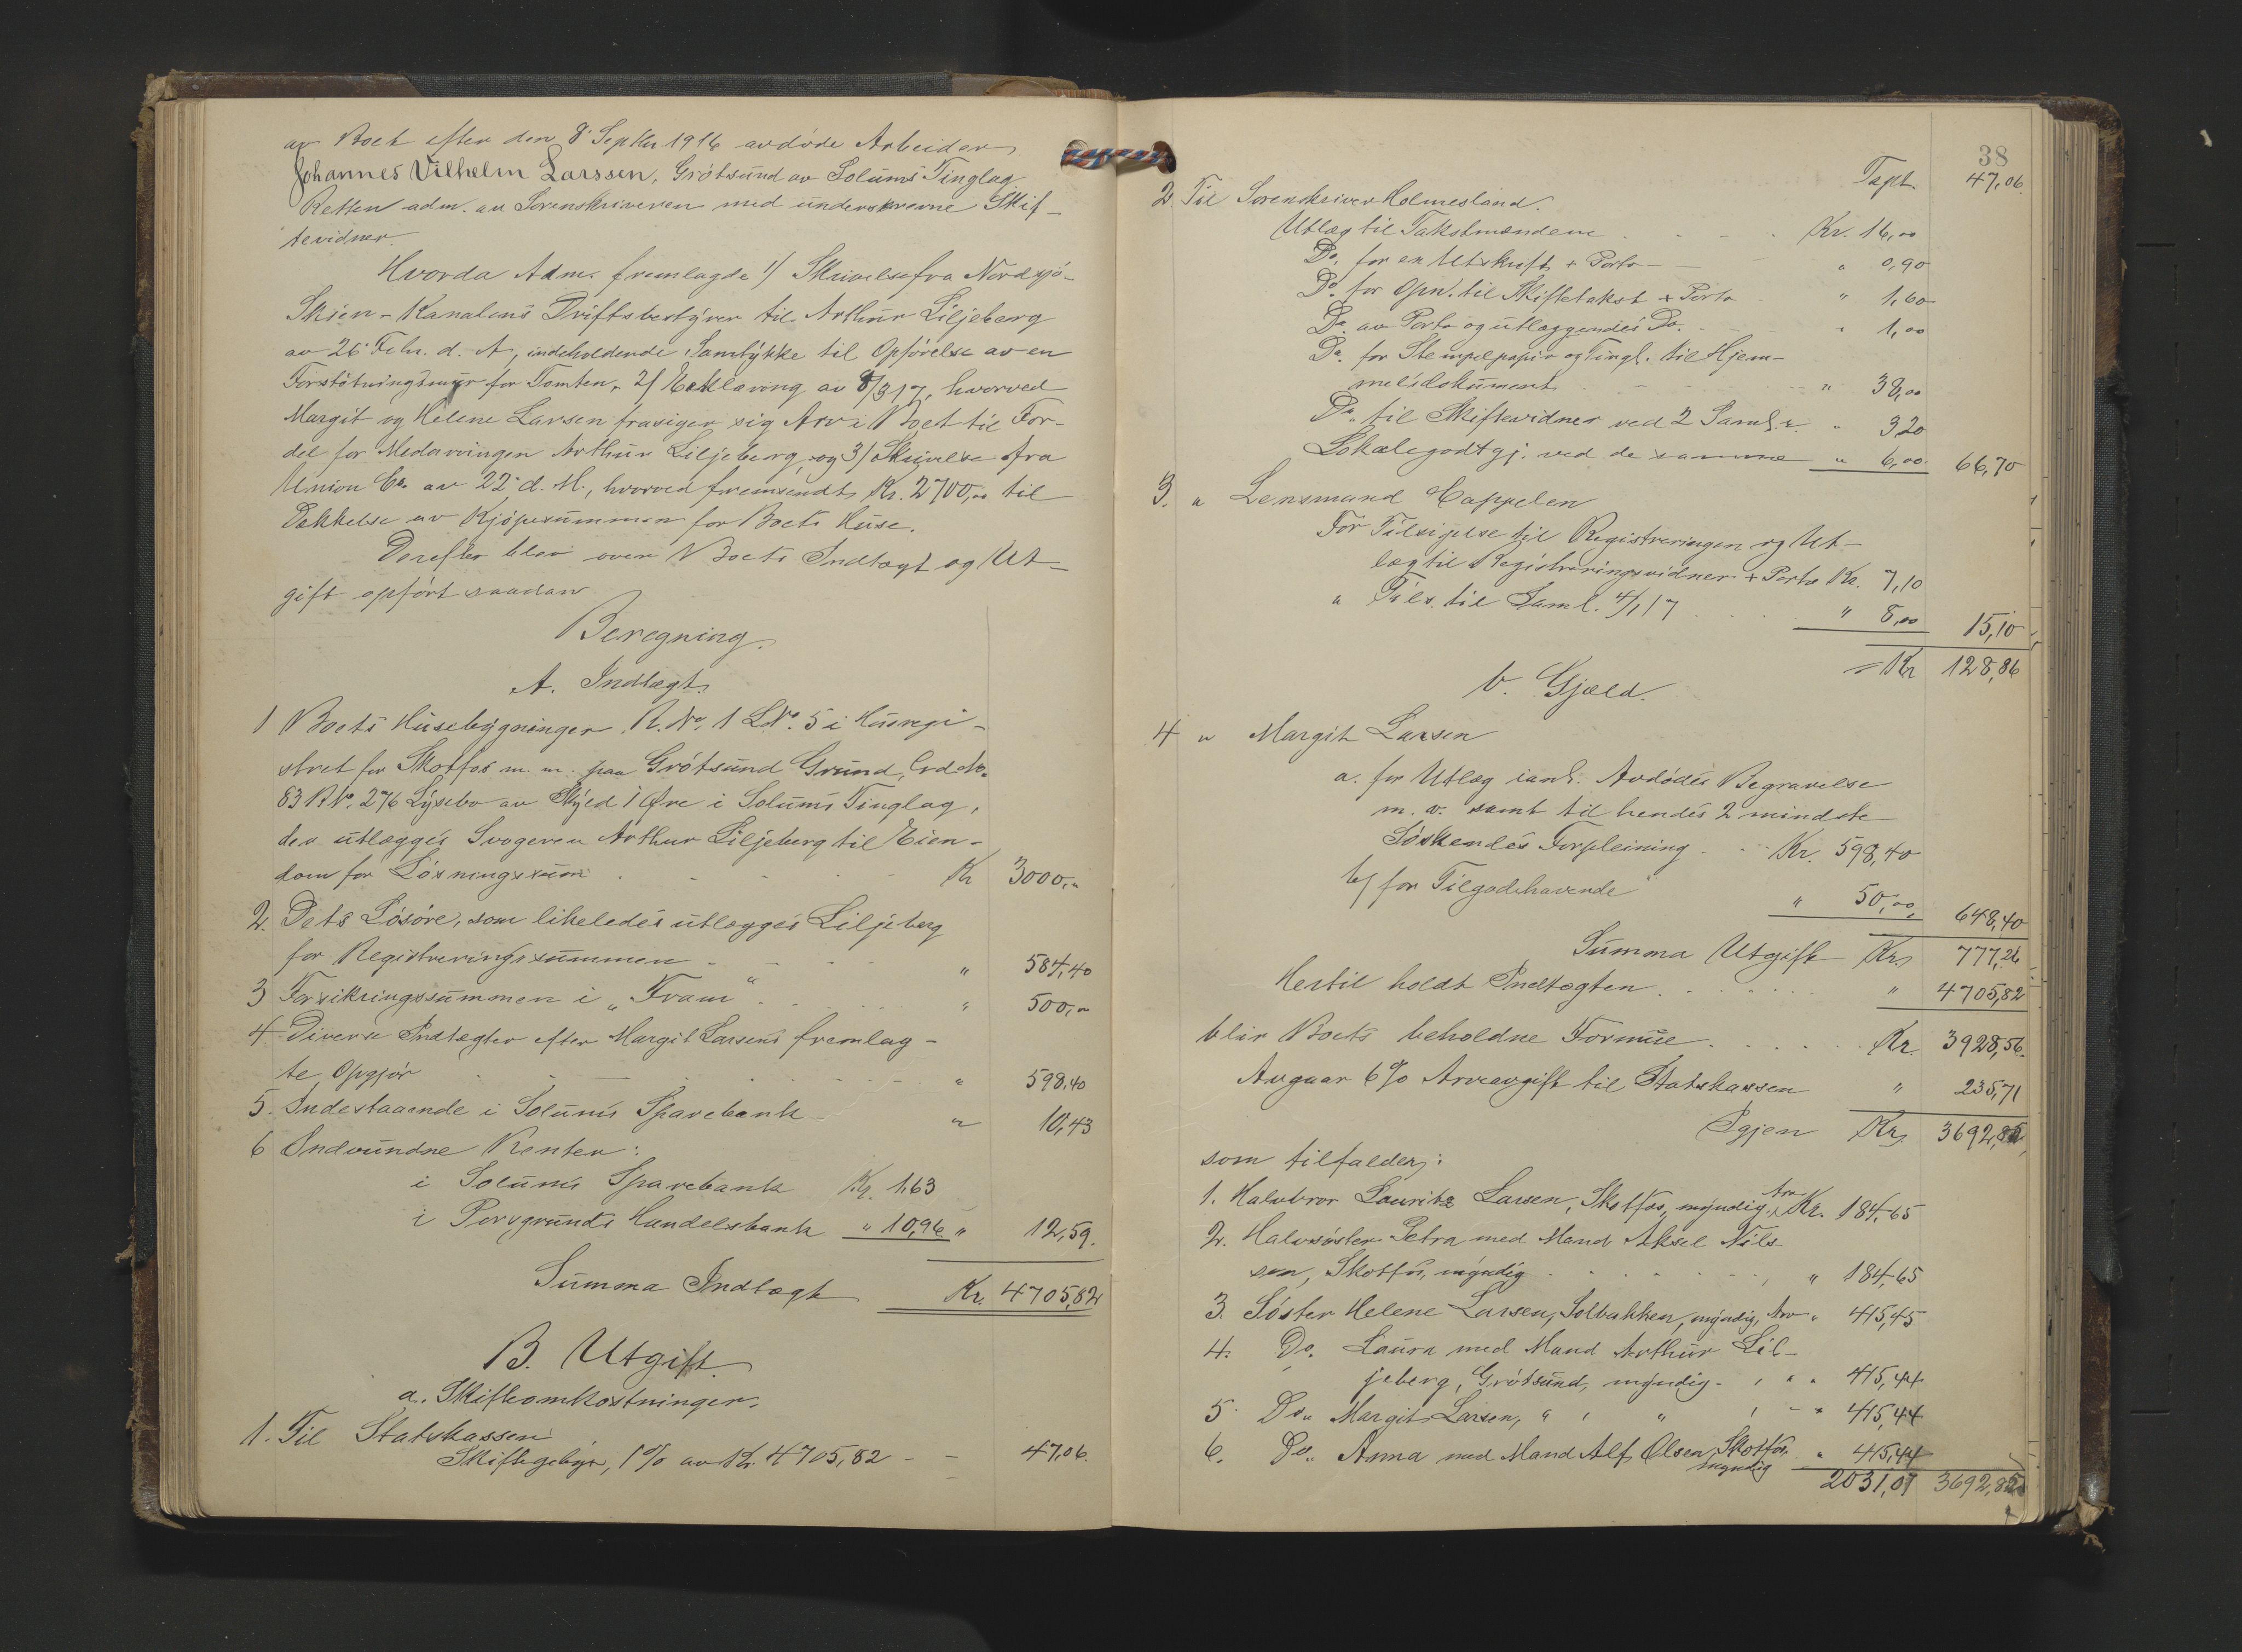 av Boet efter den 8' Septbr 1916 avdöde Arbeider
Johannes Vilhelm Larssen, Grötsund av Solums Tinglag
Retten adm. av Sorenskriveren med underskrevne Skif-
tevidner.
Hvorda Adm. fremlagde 1/ Skrivelse fra Nordsjö-
Skien-Kanalens Driftsbestyrer til Arthur Liljeberg
av 26' Febr. d. A., indeholdende Samtykke til Opförelse av en
Forstötningsmur for Tomten, 2/ Erklæring av 8/3 17, hvorved
Margit og Helene Larsen frasiger sig Arv i Boet til For-
del for Medarvingen Arthur Liljeberg og 3/ Skrivelse fra
Union Co. av 22' d. M., hvorved fremsendts Kr. 2700,00 til
Dækkelse av Kjöpesummen for Boets Huse.
Derefter blev over Boets Indtægt og Ut-
gift opfört saadan
Beregning.
A. Indtægt.
1 Boets Husebygninger R. No. 1 L.No. 5 i Husregi-
stret for Skotfos m. m. paa Grötsund Grund, Grdsno.
83 B.No. 276 Lysebo av Skyld 1 Øre i Solums Tinglag,
der utlægges Svogeren Arthur Liljeberg til Eien-
dom for Lösningssum . . . . Kr 3000,"
2. Dets Lösöre, som likeledes utlægges Liljeberg
for Registreringssummen - - - - " 584,40
3 Forsikringssummen i „Fram" . . . . " 500,"
4 Diverse Indtægter efter Margit Larsens fremlag-
te Opgjör . . . . " 598,40
5. Indestaaende i Solums Sparebank " 10,43
6 Indvundne Renter:
i Solums Sparebank Kr. 1,63
i Porsgrunds Handelsbank " 10,96 " 12,59.
Summa Indtægt Kr. 4705,82
B. Utgift.
a. Skifteomkostninger.
1. Til Statskassen
Skiftegebyr, 1% av Kr. 4705,82 - - 47,06.
38
Tspt. 47,06
2 Til Sorenskriver Holmesland.
Utlæg til Takstmændene . - - . Kr. 16,00
Do. for en Utskrift + Porto - - " 0,90
Do. for Opn. til Skiftetakst + Porto " 1,60
Do. av Porto og utlæggendes Do. . - " 1,00
Do. for Stempelpapir og Tingl. til Hjem-
melsdokument . - - - - " 38,00
Do. til Skiftevidner ved 2 Saml.r. " 3,20
Lokalegodtgj. ved de samme " 6,00 66,70
3. " Lensmand Cappelen
For Tilsigelse til Registreringen og Ut-
læg til Registreringsvidner + Porto Kr. 7,10
" Tils. til Saml. 4/1 17 . . . . " 8,00 15,10
= Kr 128,86
b. Gjæld.
4 " Margit Larsen
a. for Utlæg ianl. Avdödes Begravelse
m. v. samt til hendes 2 mindste
Söskendes Forpleining . - Kr. 598,40
b/ for Tilgodehavende " 50,00, 648,40
Summa Utgift Kr. 777,26
Hertil holdt Indtægten . . . . " 4705,82
blir Boets beholdne Formue . . . . Kr. 3928,56.
Avgaar 6% Arveavgift til Statskassen " 235,71
Igjen Kr. 3692,85
som tilfalder:
1. Halvbror Lauritz Larsen, Skotfos, myndig, Arv Kr. 184,65
2. Halvsöster Petra med Mand Aksel Nils-
sen, Skotfos, myndig . . . . , " 184,65
3. Söster Helene Larsen, Solbakken, myndig, Arv " 415,45
4. Do. Laura med Mand Arthur Lil-
jeberg, Grötsund, myndig - , " " 415,44
5. Do. Margit Larsen, " , " , - " 415,44
6. Do. Anna med Mand Alf Olsen, Skotfos, myndig " 415,44
2031,07 3692,85